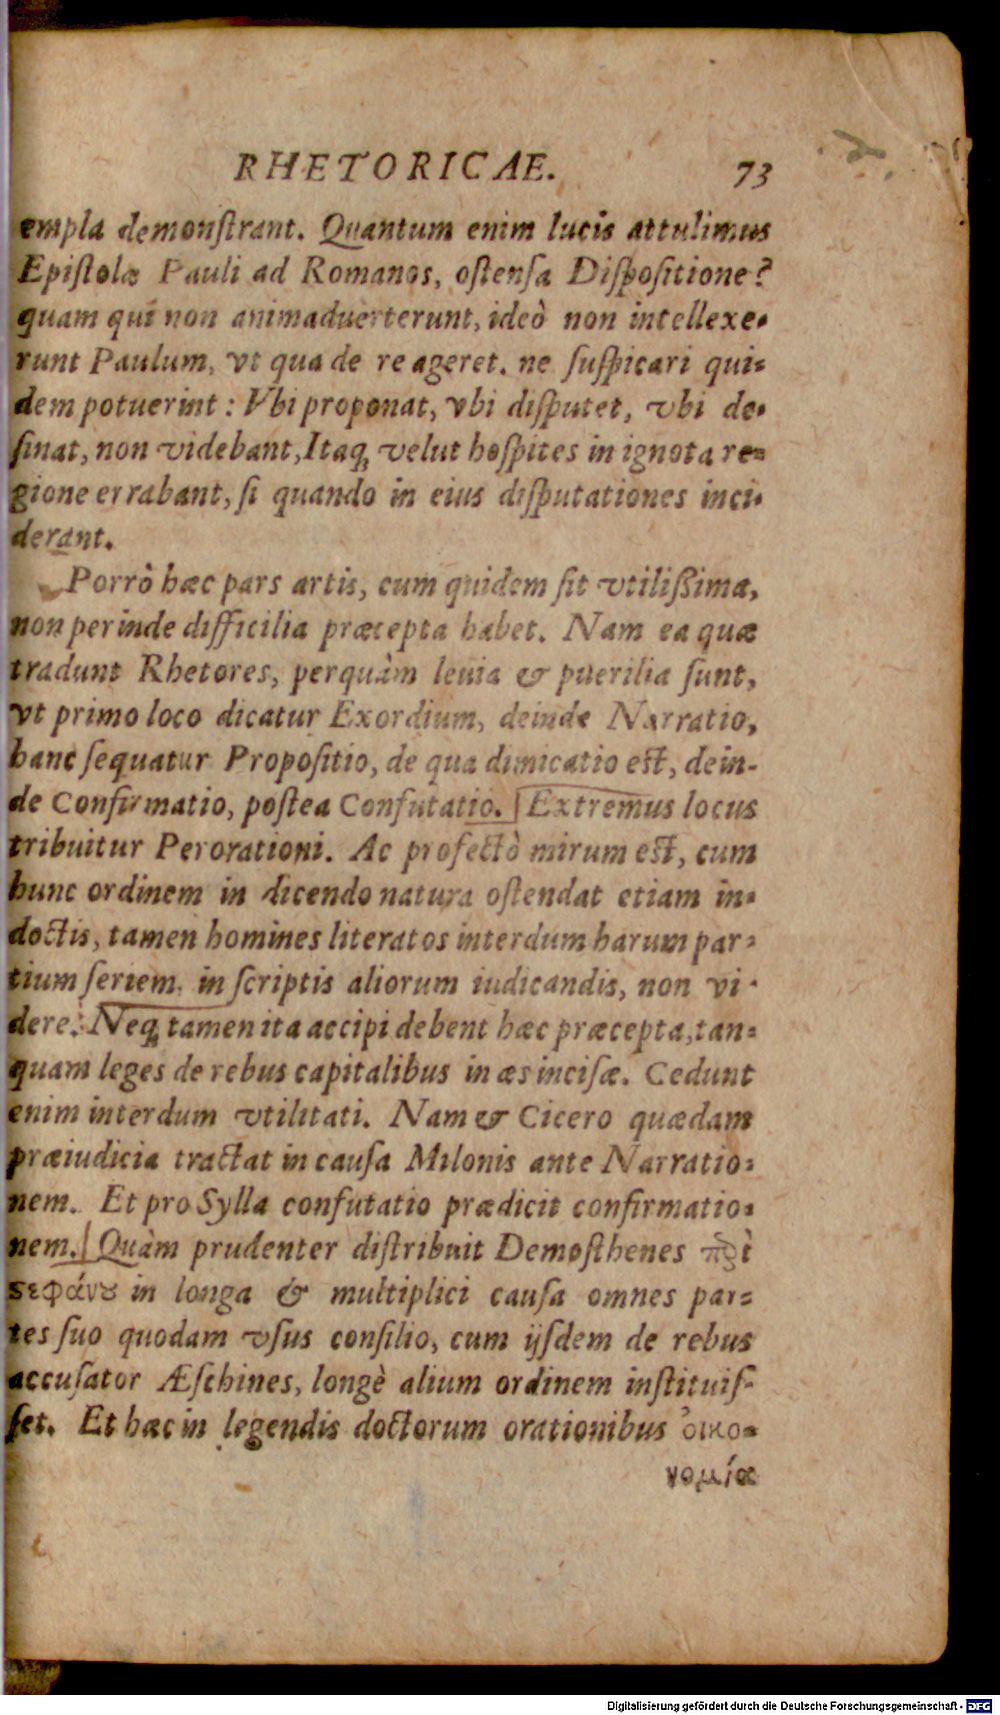 RHETORICAE. 73
empla demonſtrant. Quantum enim lucis attulimus
Epiſtolæ Pauli ad Romanos, oſtenſa Diſpoſitione?
quam qui non animaduerterunt, ideò non intellexe-
runt Paulum, vt qua de re ageret. ne ſuſpicari qui-
dem potuerint: Vbi proponat, vbi diſputet, vbi de-
ſinat, non videbant, Itaq; velut hoſpites in ignota re-
gione errabant, ſi quando in eius diſputationes inci-
derant.
Porrò hæc pars artis, cum quidem ſit vtilißima,
non perinde difficilia præcepta habet. Nam ea quæ
tradunt Rhetores, perquàm leuia & puerilia ſunt,
vt primo loco dicatur Exordium, deinde Narratio,
hanc ſequatur Propoſitio, de qua dimicatio eſt, dein-
de Confirmatio, poſtea Confutatio. Extremus locus
tribuitur Perorationi. Ac profectò mirum eſt, cum
hunc ordinem in dicendo natura oſtendat etiam in-
doctis, tamen homines literatos interdum harum par-
tium ſeriem in ſcriptis aliorum iudicandis, non vi-
dere. Neq; tamen ita accipi debent hæc præcepta, tan-
quam leges de rebus capitalibus in æs inciſæ. Cedunt
enim interdum vtilitati. Nam & Cicero quædam
præiudicia tractat in cauſa Milonis ante Narratio-
nem. Et pro Sylla confutatio prædicit confirmatio-
nem. Quàm prudenter diſtribuit Demoſthenes πρὶ
ϛεφάνȣ in longa & multiplici cauſa omnes par-
tes ſuo quodam vſus conſilio, cum ijſdem de rebus
accuſator Æſchines, longè alium ordinem inſtituiſ-
ſet. Et hæc in legendis doctorum orationibus ὀικο-
νομία
Digitalisierung gefördert durch die Deutsche Forschungsgemeinschaft - DFG